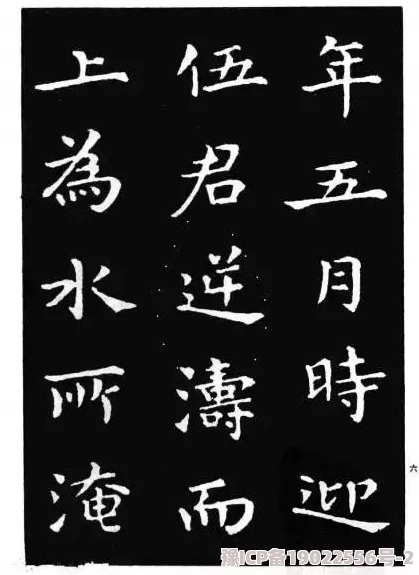 年五月時迎
伍君逆濤而
上為水所淹
六
豫ICP备19022556号-2